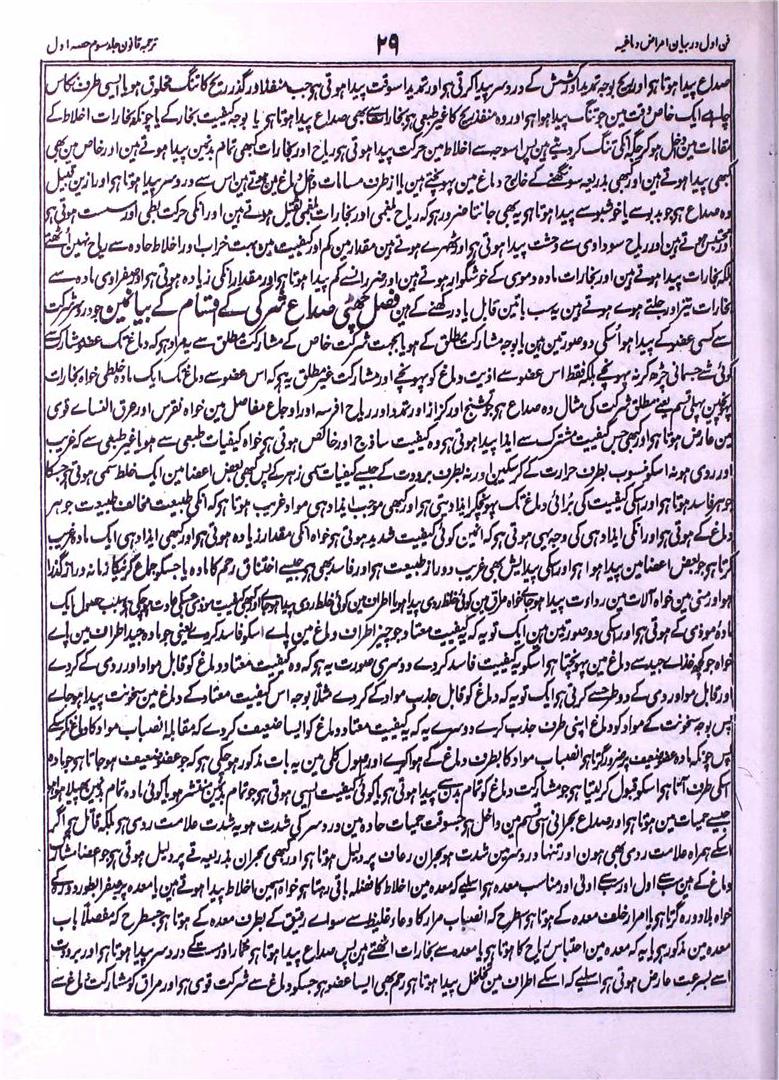 فن اول در بیان امراض دماغیہ ۲۹ ترجمہ قانون جلد سوم حصہ اول
صداع پیدا ہوتا ہو اور ریح بوجہ تمدید اور کشش کے درد سر پیدا کرتی ہو اور تمدید اسوقت پیدا ہوتی ہو جب منفذ اور گذر ریح کا تنگ مخلوق ہو یا ایسی طرف نکاس
چاہے ایک خاص وقت مین جو تنگ پیدا ہوا ہو اور وہ منفذ ریح کا غیر طبعی ہو بخارات سے بھی صداع پیدا ہوتا ہو یا بوجہ کیفیت بخار کے یا چونکہ بخارات اخلاط کے
مقامات مین دخل ہو کر جگہ انکی تنگ کر دیتے ہین پس اسوجہ سے اخلاط مین حرکت پیدا ہوتی ہو ریاح اور بخارات کبھی تمام بدن مین پیدا ہوتے ہین اور خاص مین بھی
کبھی پیدا ہوتے ہین اور کبھی بذریعہ سونگھنے کے خارج دماغ مین پہونچتے ہین یا از طرف مسامات داخل دماغ مین ہوتے ہین اس سے درد سر پیدا ہوتا ہو اور ازین قبیل
وہ صداع ہو جو بدبو سے یا خوشبو سے پیدا ہوتا ہو یہ بھی جاننا ضرور ہو کہ ریاح بلغمی اور بخارات بلغمی ثقیل ہوتے ہین اور انکی حرکت بطی اور سست ہوتی ہو
اور محتبس ہوتے ہین اور ریاح سوداوی سے وحشت پیدا ہوتی ہو اور ٹھہرے ہوتے ہین مقدار مین کم اور کیفیت مین بہت خراب اور اخلاط حادہ سے ریاح نہین اٹھتے
بلکہ بخارات پیدا ہوتے ہین اور بخارات مادہ دموی کے خوشگوار ہوتے ہین اور ضرر انسے کم پیدا ہوتا ہو اور مقدار انکی زیادہ ہوتی ہو اور صفراوی مادہ سے
بخارات تیز اور جلتے ہوے ہوتے ہین یہ سب باتین قابل یاد رکھنے کے ہین فصل چھٹی صداع شرکی کے اقسام کے بیان مین جو درد سر شرکت
سے کسی عضو کے پیدا ہو اسکی دو صورتین ہین یا بوجہ مشارکت مطلق کے ہو یا بجہت شرکت خاص کے مشارکت مطلق سے یہ مراد ہو کہ دماغ تک عضو مشارک سے
کوئی شے جسمانی چڑھ کر نہ پہونچے بلکہ فقط اس عضو سے اذیت دماغ کو پہونچے اور مشارکت غیر مطلق یہ ہو کہ اس عضو سے دماغ تک ایک مادہ خلطی خواہ بخارات
پہونچین پہلی قسم یعنے مطلق شرکت کی مثال وہ صداع ہو جو تشنج اور کزاز اور تمدد اور ریاح افرسہ اور اوجاع مفاصل مین خواہ نقرس اور عرق النساے قوی
مین عارض ہوتا ہو اور کبھی جس کیفیت مشترک سے ایذا پیدا ہوتی ہو وہ کیفیت ساذج اور خالص ہوتی ہو خواہ کیفیات طبعی سے ہو یا غیر طبعی سے کہ غریب
اور ردی ہو نہ اسکو منسوب بطرف حرارت کے کر سکین اور نہ بطرف برودت کے جیسے کیفیات سمی زہر کے پس کبھی بعض اعضا مین ایک خلط سمی ہوتی ہو جسکا
جوہر فاسد ہوتا ہو اور اسکی کیفیت کی برائی دماغ تک پہونچکر ایذا دیتی ہو اور کبھی موجب ایذا دہی مواد غریب ہوتا ہو کہ انکی طبیعت مخالف طبیعت جوہر
دماغ کے ہوتی ہو اور انکی ایذا دہی کی وجہ یہی ہوتی ہو کہ انمین کوئی کیفیت شدید ہوتی ہو خواہ انکی مقدار زیادہ ہوتی ہو اور کبھی ایذا دہی ایک مادہ غریب
کرتا ہو جو بعض اعضا مین پیدا ہوا ہو اور اسکی پیدایش بھی غریب دور از طبیعت ہو اور فاسد بھی ہو جیسے اختناق رحم کا مادہ یا جسکو جماع کرنیکا زمانہ دراز گذرا
ہو اور منی مین خواہ آلات مین رداءت پیدا ہو جاے خواہ مراق مین کوئی خلط ردی پیدا ہو یا اطراف مین کوئی خلط ردی پیدا ہو جاے
مادہ موذی کے ہوتی ہو اور اسکی دو صورتین ہین ایک تو یہ کہ یہ کیفیت معتاد جو چیز اطراف دماغ مین پاے اسکو فاسد کر دے یعنی جو مادہ جید اطراف مین پاے
خواہ جو کچھ غذاے جید سے دماغ مین پہونچتا ہو اسکو یہ کیفیت فاسد کر دے دوسری صورت یہ ہو کہ وہ کیفیت معتاد دماغ کو قابل مواد اور ردی کے کر دے
اور قابل مواد ردی کے دو طرح سے کرتی ہو ایک تو یہ کہ دماغ کو قابل جذب مواد کے کر دے مثلا بوجہ اس کیفیت معتاد کے دماغ مین سخونت پیدا ہو جاے
پس بوجہ سخونت کے مواد کو دماغ اپنی طرف جذب کرے دوسرے یہ کہ یہ کیفیت معتاد دماغ کو ایسا ضعیف کر دے کہ مقابلہ انصباب مواد کا دماغ نہ کر سکے
پس چونکہ مادہ عضو ضعیف پر ضرور گرتا ہو انصباب مواد کا بطرف دماغ کے ہوا کرے اور اصول کلی مین یہ بات مذکور ہو چکی ہو کہ جو عضو ضعیف ہو جاتا ہو جو مادہ
اسکی طرف آتا ہو اسکو قبول کر لیتا ہو جو مشارکت دماغ کو تمام بدن سے پیدا ہوتی ہو یا کوئی کیفیت ایسی ہوتی ہو جو تمام بدن مین منتشر ہو یا کوئی مادہ تمام بدن مین پھیلا ہوا ہو
جیسے حمیات مین ہوتا ہو اور صداع بحرانی اسی قسم مین داخل ہو جسوقت حمیات حادہ مین درد سر کی شدت ہو یہ شدت علامت ردی ہو بلکہ قاتل ہو اگر
اسکے ہمراہ علامات ردی بھی ہون اور تنہا درد سر مین شدت ہو بحران رعاف پر دلیل ہوتا ہو اور کبھی بحران بذریعہ قے پر دلیل ہوتی ہو جو عضو مشارک
دماغ کے ہین سب سے اول اور سب سے اولی اور مناسب معدہ ہو اسلیے کہ معدہ مین اخلاط کا فضلہ باقی رہتا ہو خواہ اسمین اخلاط پیدا ہوتے ہین یا معدہ پر صفرا بطور دورہ کے
خواہ بلا دورہ گرتا ہو یا امرار خلف معدہ کے ہوتا ہو جسطرح کہ انصباب مرار کا وعاء غلیظ سے سواے رقیق کے بطرف معدہ کے ہوتا ہو جسطرح کہ مفصلا باب
معدہ مین مذکور ہو یا یہ کہ معدہ مین احتباس ریاح کا ہوتا ہو یا معدہ سے بخارات اٹھتے ہین پس صداع پیدا ہوتا ہو درد سر پیدا ہوتا ہو اور برودت
اسے بسرعت عارض ہوتی ہو اسلیے کہ اسکے اطراف مین تخلخل پیدا ہوتا ہو رحم بھی ایسا عضو ہو جسکو دماغ سے شرکت قوی ہو اور مراق کو مشارکت دماغ سے